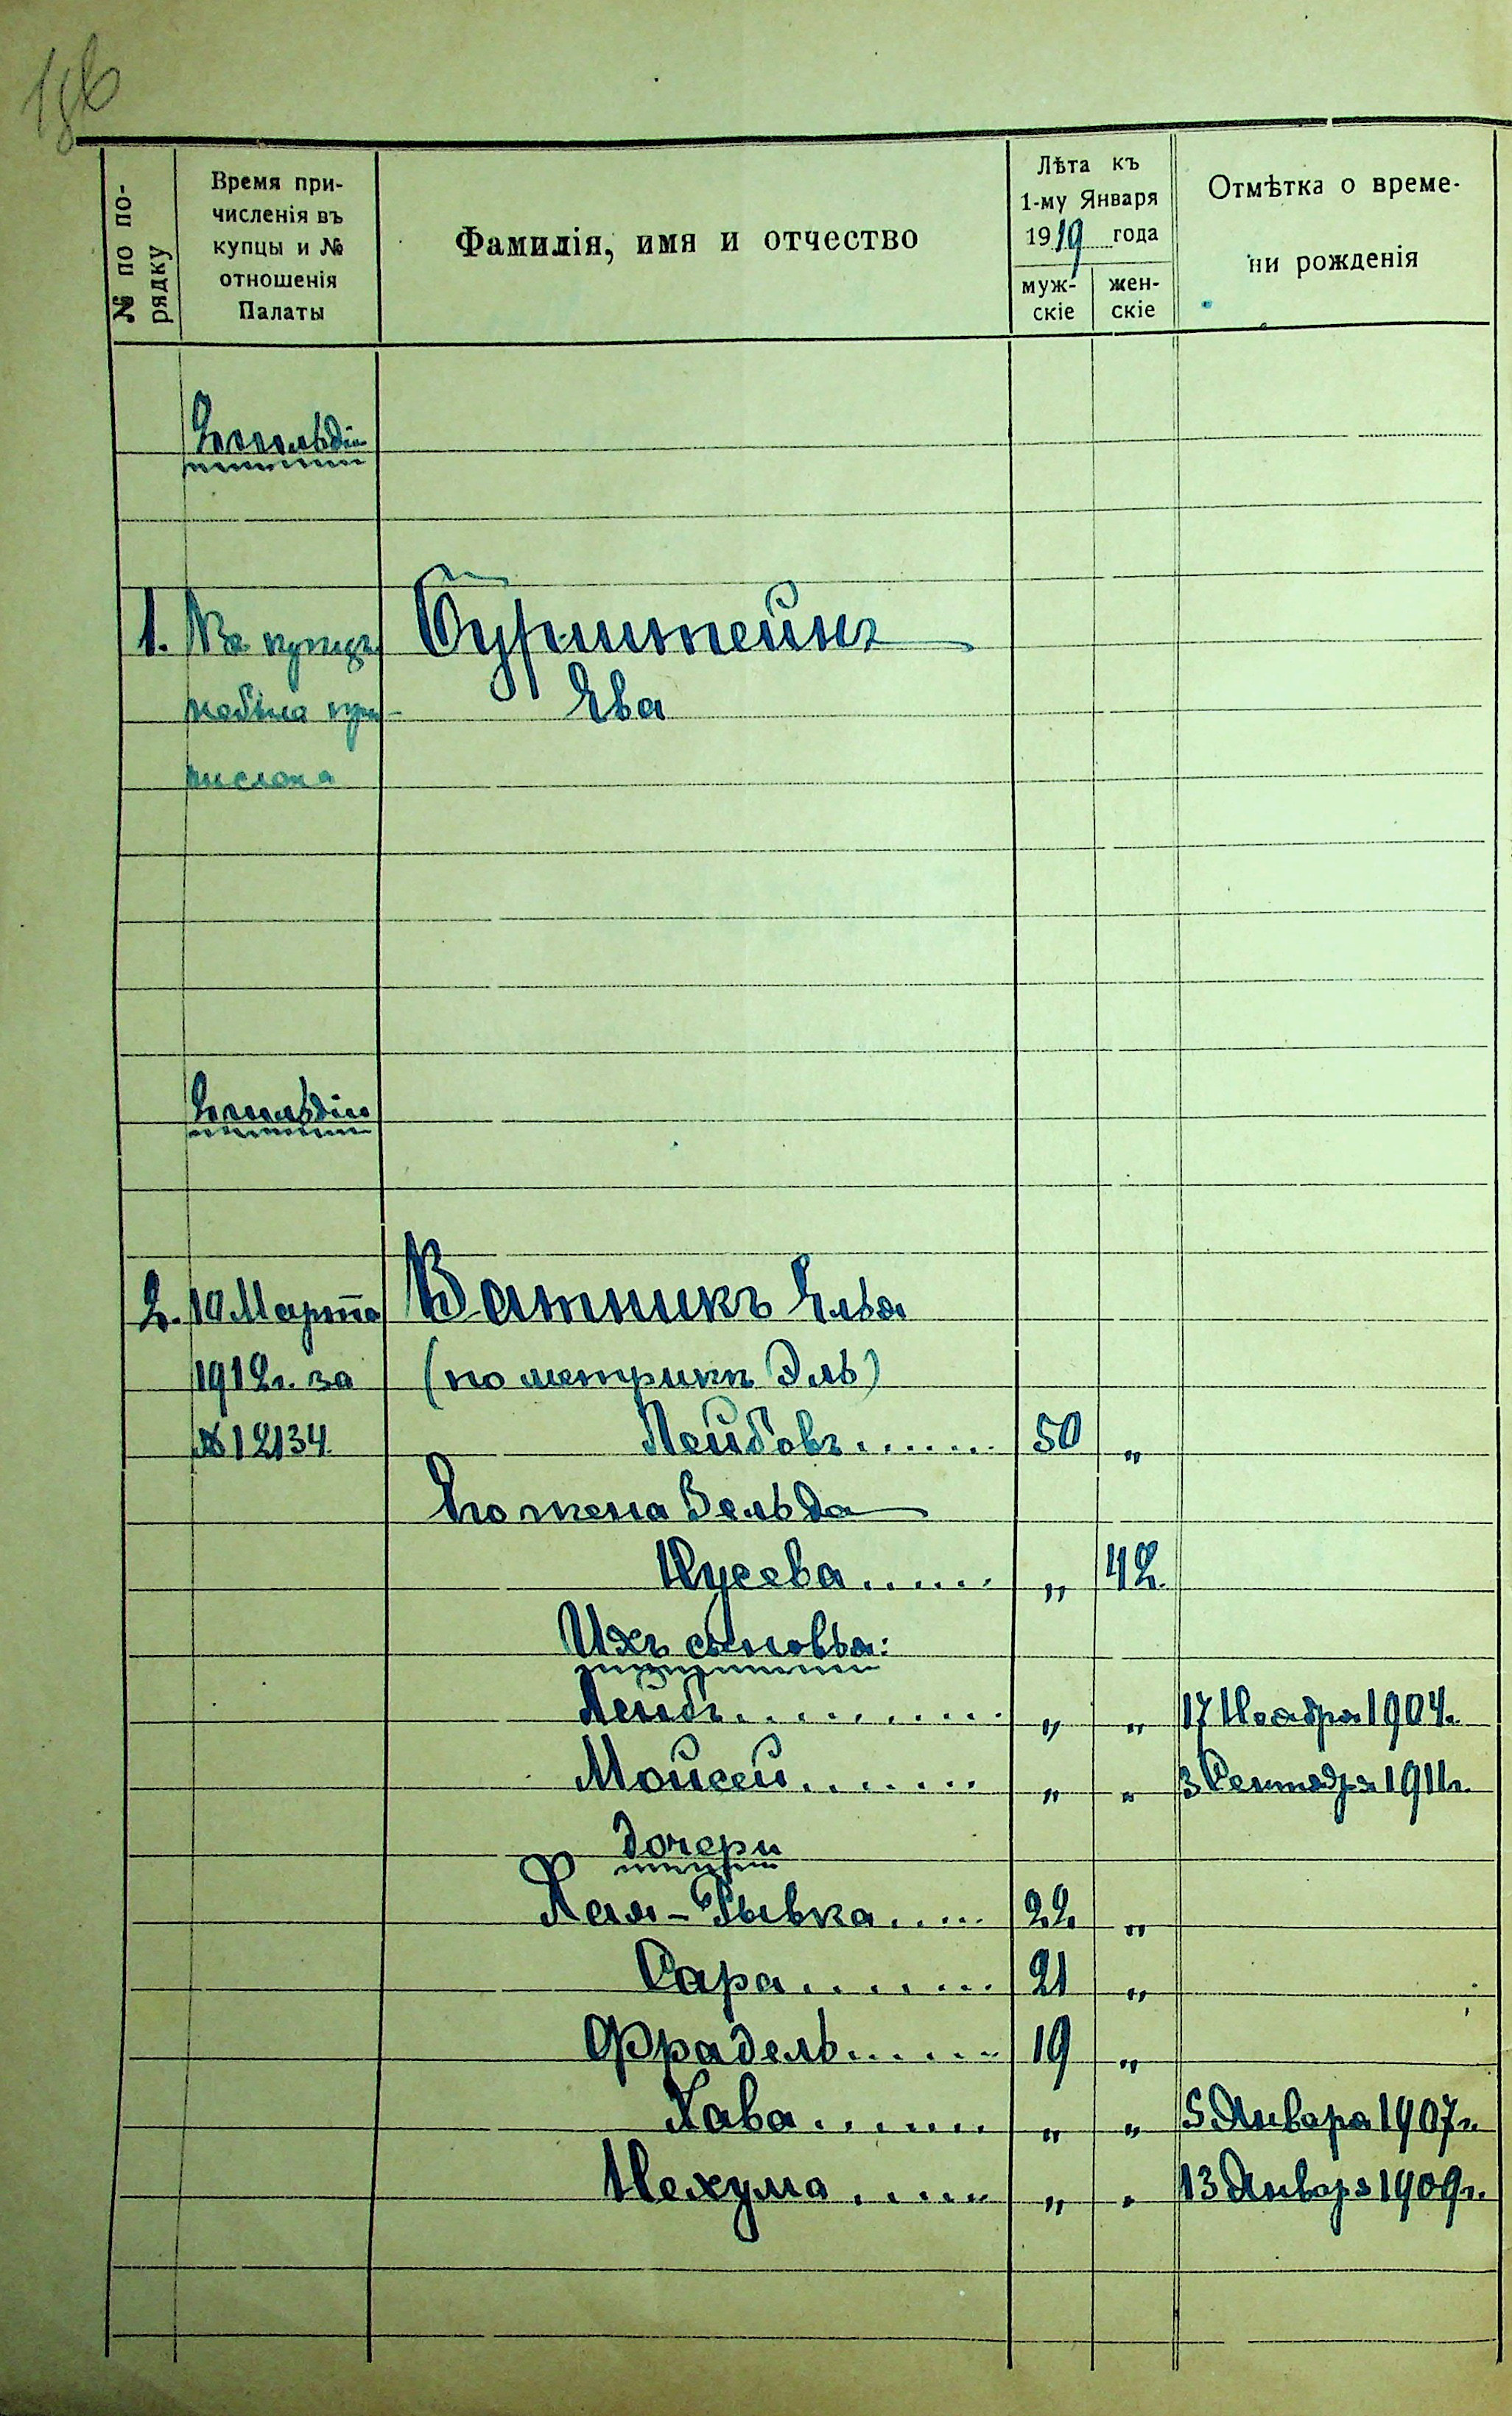 186
№ по по-
рядку
Время при-
численія въ
купцы и №
отношенія
Палаты
Фамилія, имя и отчество
Лѣта къ
1-му Января
1919 года
муж-
скіе
жен-
скіе
Отмѣтка о време-
ни рожденія
1. Бурштейнъ
Ева
числена
2. 10 Марта Ватникъ Элья
1912г. за (по метрикѣ Эль)
№ 12134 Лейбовъ....... 50 „
Его жена Зельда
Нусева...... „ 42.
Ихъ сыновья:
Лейбъ........... „ „ 17 Ноября 1904.
Мойсей....... „ „ 3 Сентября 1911г.
дочери
Хая-Рывка..... 22 „
Сара....... 21 „
Фрадель...... 19 „
Хава....... „ „ 5 Января 1907г.
Нехума...... „ „ 13 Января 1909г.